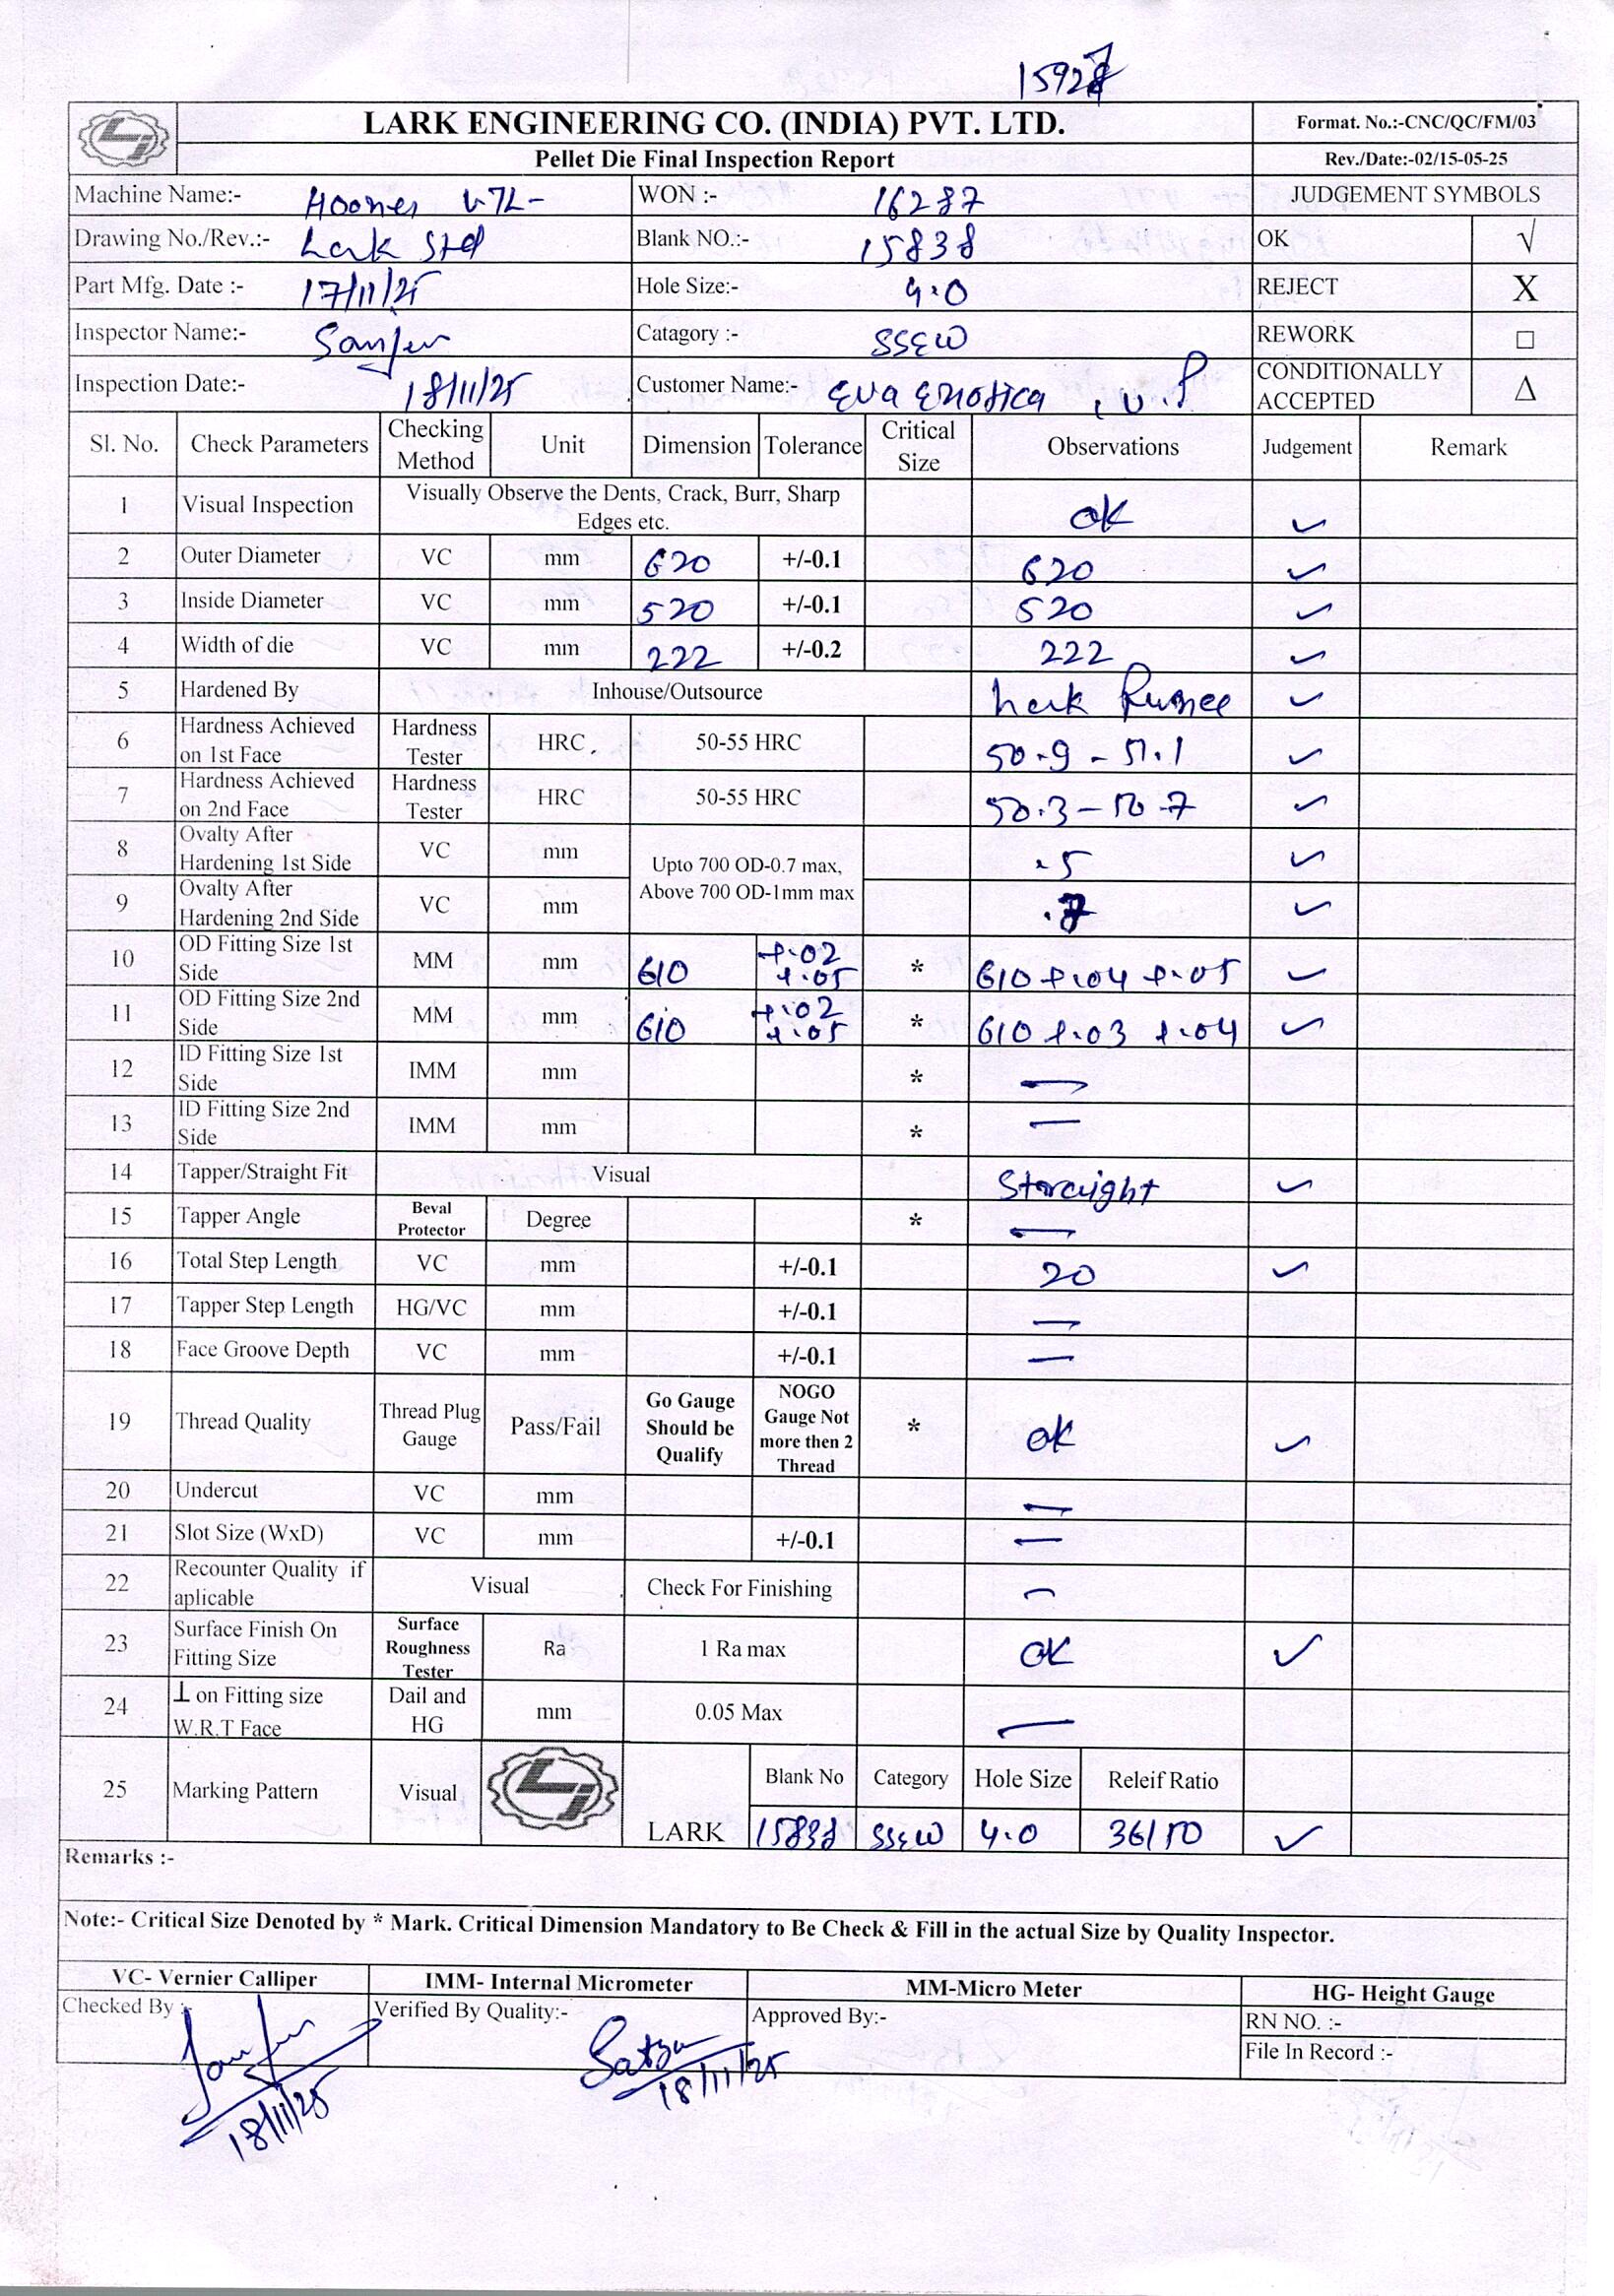 15927
LARK ENGINEERING CO. (INDIA) PVT. LTD. Format. No.:-CNC/QC/FM/03
Pellet Die Final Inspection Report Rev./Date:-02/15-05-25
Machine Name:- WON :- 16287 JUDGEMENT SYMBOLS
Drawing No./Rev.:- Lark Std Blank NO.:- 15838 OK √
Part Mfg. Date :- 17/11/25 Hole Size:- 4.0 REJECT X
Inspector Name:- Catagory :- SSEW REWORK □
Inspection Date:- 18/11/25 Customer Name:- Eva U.P CONDITIONALLY ACCEPTED Δ
Sl. No. Check Parameters Checking Method Unit Dimension Tolerance Critical Size Observations Judgement Remark
1 Visual Inspection Visually Observe the Dents, Crack, Burr, Sharp Edges etc. ok ✓
2 Outer Diameter VC mm 620 +/-0.1 620 ✓
3 Inside Diameter VC mm 520 +/-0.1 520 ✓
4 Width of die VC mm 222 +/-0.2 222 ✓
5 Hardened By Inhouse/Outsource Lark ✓
6 Hardness Achieved on 1st Face Hardness Tester HRC 50-55 HRC 50.9 - 51.1 ✓
7 Hardness Achieved on 2nd Face Hardness Tester HRC 50-55 HRC 50.3 - 50.7 ✓
8 Ovalty After Hardening 1st Side VC mm Upto 700 OD-0.7 max, Above 700 OD-1mm max .5 ✓
9 Ovalty After Hardening 2nd Side VC mm .7 ✓
10 OD Fitting Size 1st Side MM mm 610 +.02 +.05 * 610 +.04 +.05 ✓
11 OD Fitting Size 2nd Side MM mm 610 +.02 +.05 * 610 +.03 +.04 ✓
12 ID Fitting Size 1st Side IMM mm * —
13 ID Fitting Size 2nd Side IMM mm * —
14 Tapper/Straight Fit Visual Straight ✓
15 Tapper Angle Beval Protector Degree * —
16 Total Step Length VC mm +/-0.1 20 ✓
17 Tapper Step Length HG/VC mm +/-0.1 —
18 Face Groove Depth VC mm +/-0.1 —
19 Thread Quality Thread Plug Gauge Pass/Fail Go Gauge Should be Qualify NOGO Gauge Not more then 2 Thread * ok ✓
20 Undercut VC mm —
21 Slot Size (WxD) VC mm +/-0.1 —
22 Recounter Quality if aplicable Visual Check For Finishing —
23 Surface Finish On Fitting Size Surface Roughness Tester Ra 1 Ra max OK ✓
24 ⊥ on Fitting size W.R.T Face Dail and HG mm 0.05 Max —
25 Marking Pattern Visual LARK Blank No Category Hole Size Releif Ratio
15838 SSEW 4.0 36/50 ✓
Remarks :-
Note:- Critical Size Denoted by * Mark. Critical Dimension Mandatory to Be Check & Fill in the actual Size by Quality Inspector.
VC- Vernier Calliper IMM- Internal Micrometer MM-Micro Meter HG- Height Gauge
Checked By :- Verified By Quality:- Approved By:- RN NO. :-
File In Record :-
18/11/25 18/11/25